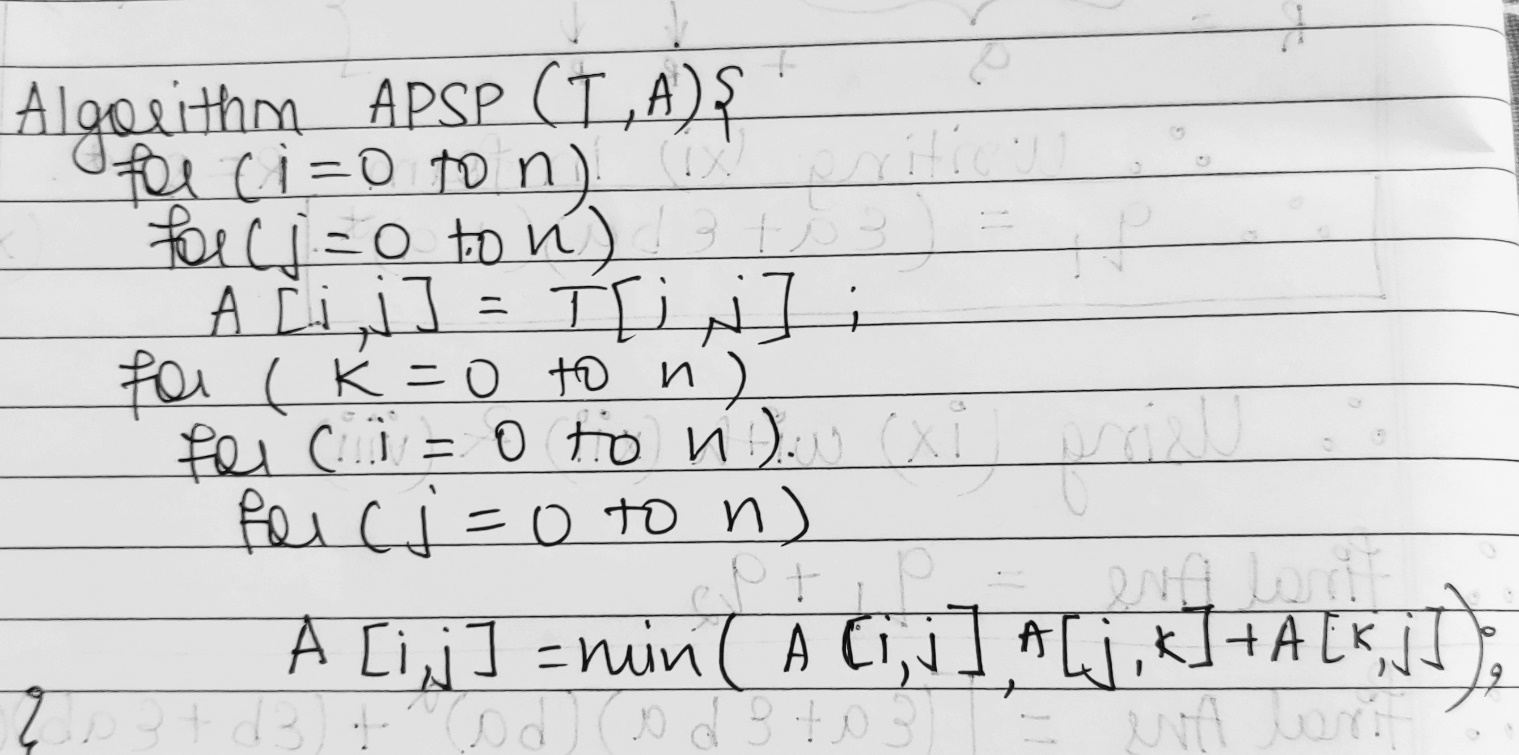 Algorithm APSP (T,A){
for (i=0 to n)
for (j=0 to n)
A [i,j] = T[i,j] ;
for ( K = 0 to n)
for (i = 0 to n).
for (j = 0 to n)
A [i,j] = min( A [i,j], A[j,K]+A[K,j]);
}